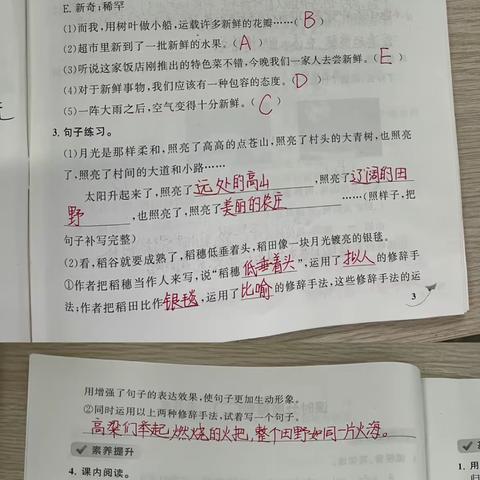 E. 新奇;稀罕
(1)而我,用树叶做小船,运载许多新鲜的花瓣……( B )
(2)超市里新到了一批新鲜的水果。( A )
(3)听说这家饭店刚推出的特色菜不错,今晚我们一家人去尝新鲜。( E )
(4)对于新鲜事物,我们应该有一种包容的态度。( D )
(5)一阵大雨之后,空气变得十分新鲜。( C )
3. 句子练习。
(1)月光是那样柔和,照亮了高高的点苍山,照亮了村头的大青树,也照亮
了,照亮了村间的大道和小路……
太阳升起来了,照亮了远处的高山,照亮了辽阔的田
野,也照亮了,照亮了美丽的农庄……(照样子,把
句子补写完整)
(2)看,稻谷就要成熟了,稻穗低垂着头,稻田像一块月光镀亮的银毯。
①作者把稻穗当作人来写,说“稻穗低垂着头”,运用了拟人的修辞手
法;作者把稻田比作银毯,运用了比喻的修辞手法,这些修辞手法的运
3
用增强了句子的表达效果,使句子更加生动形象。
②同时运用以上两种修辞手法,试着写一个句子。
高粱们举起燃烧的火把,整个田野如同一片火海。
素养提升
4. 课内阅读。
1. 用